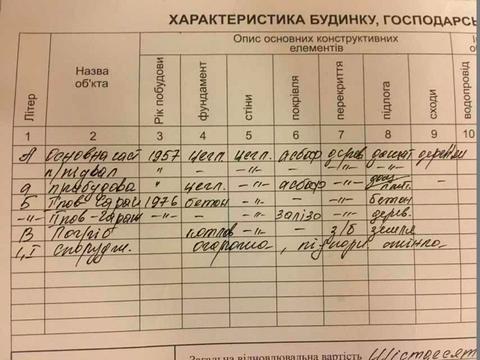 ХАРАКТЕРИСТИКА БУДИНКУ, ГОСПОДАРСЬ
Літер Назва об'єкта Рік побудови Опис основних конструктивних елементів
фундамент стіни покрівля перекриття підлога сходи водопровід
1 2 3 4 5 6 7 8 9 10
А Основна част 1957 цегл. цегл. асбоф дерев дощат дерев'ян
п/підвал " - -"- - -"- -"-
а прибудова " цегл. -"- асбоф -"-
Б Пов-гараж 1976 бетон -"- - -"- бетон
-"- Пов-гараж - - -"- залізо -"- дерев.
В Погріб -"- з/б земля
І, І споруди. огорожа, підпорн стінка
Загальна відновлювальна вартість Шістдесят